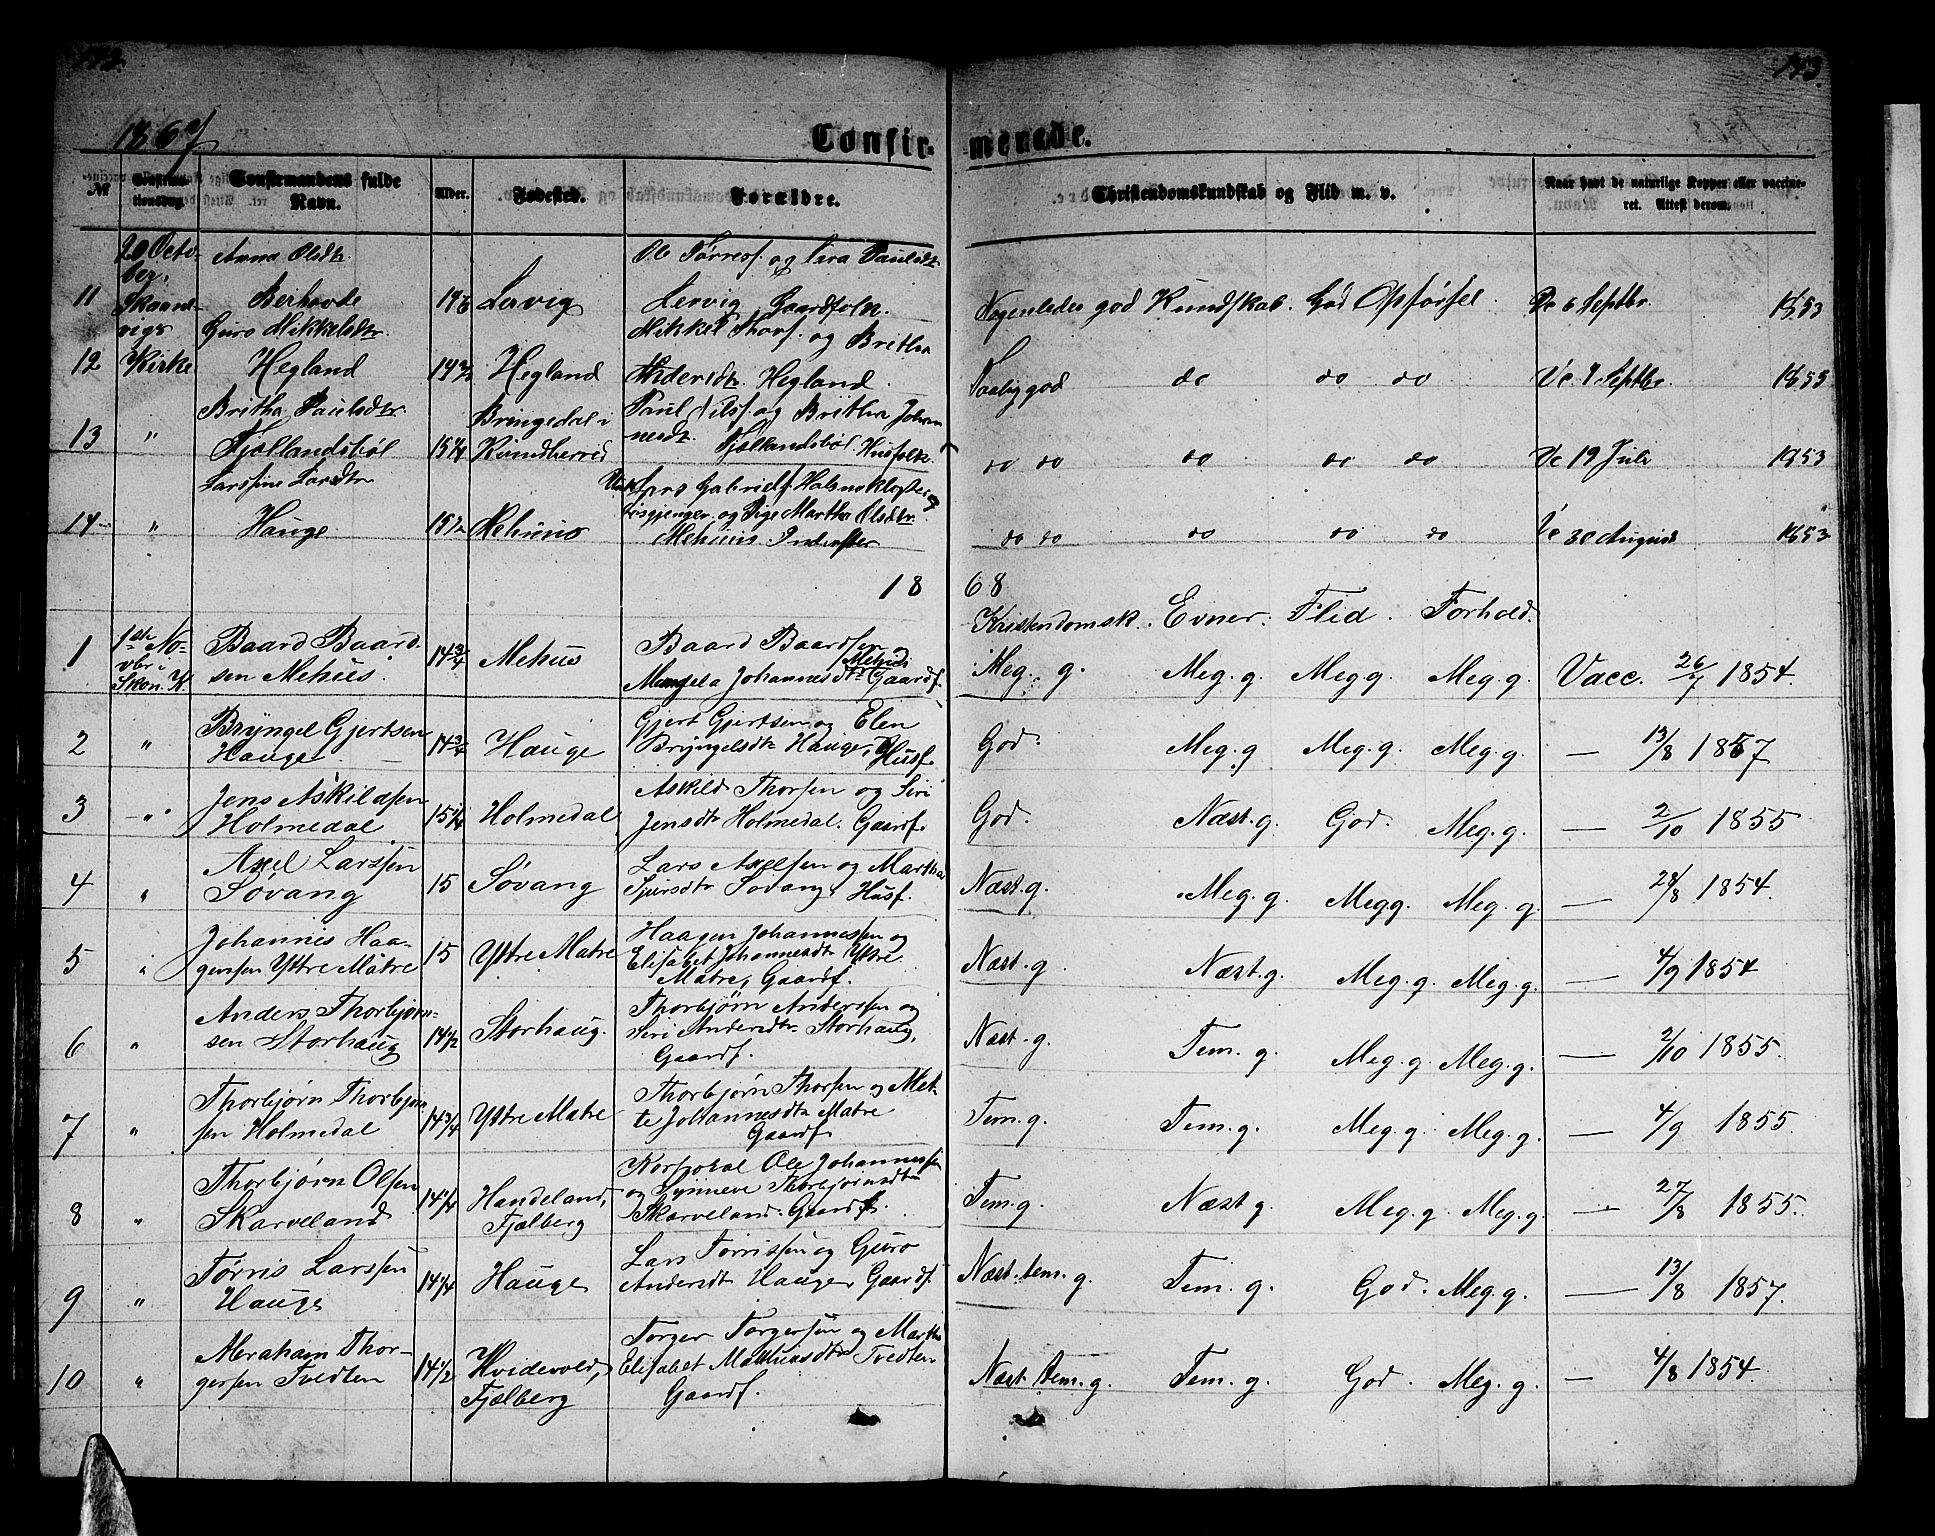 142. 143
1867
Confir- merede.
№ Confirma-tionsdag. Confirmandens fulde Navn. Alder. Fødested. Forældre. Christendomskundskab og Flid m. v. Naar havt de naturlige Kopper eller vaccine-ret. Attest derom.
20 Octo-ber. Anna Olsdtr. Ole Tørress. og Siva Paulsdtr
11 Skaane-vigs Berhovde Lervig Lervig Gaardfolk. Nogenledes god Kundskab. God Opførsel. Vc 6 Septbr. 1853
Guro Mikkelsdtr. Mikkel Thors. og Britha
12 Kirke Hegland 14 1/2 Hegland Andersdtr. Hegland. Taalig god do do do Vc 9 Septbr. 1855
Britha Paulsdtr. Bringedal i Paul Nilss. og Britha Johan-
13 " Fjellandsbøl 15 1/4 Kvindherred nesdtr. Fjællandsbøl. Husfolk. do do do do do Vc 19 Juli 1853
Larssine Larsdtr Lars Gabriels. Halsnøkloster
14 " Hauge 15 1/2 Mehuus og Pige Martha Olsdtr. do do do do do Vc 30 August 1853
Mehuus. Inderster
18 68
Kristendomsk. Evner. Flid. Forhold.
1 1ste No-vbr i Skon. K. Baard Baard-sen Mehus. 14 3/4 Mehus Baard Baardsen og Mangela Johannesdtr Mehus Gaardf. Meg. g. Meg. g. Meg g. Meg. g. Vacc. 26/7 1854.
2 " Bryngel Gjertsen Hauge. 14 3/4 Hauge Gjert Gjertsen og Elen Bryngelsdtr Hauge, Husf. God. Meg. g Meg. g. Meg. g. — 13/8 1857
3 " Jens Askildsen Holmedal 15 1/4 Holmedal Askild Thorsen og Siri Jensdtr Holmedal. Gaardf. God. Næst. g. God. Meg. g. — 2/10 1855
4 " Axel Larssen Søvang 15 Søvang Lars Axelsen og Martha Sjursdtr Søvang. Husf. Næst. g. Meg. g. Meg g. Meg. g. — 28/8 1854.
5 " Johannis Haa-gensen Yttre Matre 15 Yttre Matre Haagen Johannessen og Elisabet Johannesdtr Yttre Matre, Gaardf. Næst. g. Næst. g. Meg. g. Meg. g. — 4/9 1854
6 " Anders Thorbjørn-sen Storhaug 14 1/2 Storhaug. Thorbjørn Anderssen og Siri Andersdtr Storhaug, Gaardf. Næst. g. Tem. g. Meg. g. Meg. g. — 2/10 1855.
7 " Thorbjørn Thorbjørn sen Holmedal 14 3/4 Yttre Matre Thorbjørn Thorsen og Met-te Johannesdtr Matre Gaardf. Tem. g. Tem. g. Meg. g. Meg. g. — 4/9 1855.
8 " Thorbjørn Olsen Skarveland 14 1/4 Handeland, Fjælberg Korporal Ole Johannessen og Synneve Thorbjørnsdtr Skarveland. Gaardf. Tem. g. Næst g. Meg. g. Meg. g. — 27/8 1855.
9 " Tørris Larssen Hauge 14 1/4 Hauge Lars Tørrissen og Guro Andersdt Hauge, Gaardf. Næst. tem. g. Tem. g. God. Meg. g. — 13/8 1857.
10 " Abraham Thor-gersen Tvedten 14 1/2 Hvidevold, Fjælberg Torger Torgersen og Martha Elisabet Mathiasdtr Tvedten Gaardf. Næst tem. g. Tem. g. God. Meg. g. — 4/8 1854.